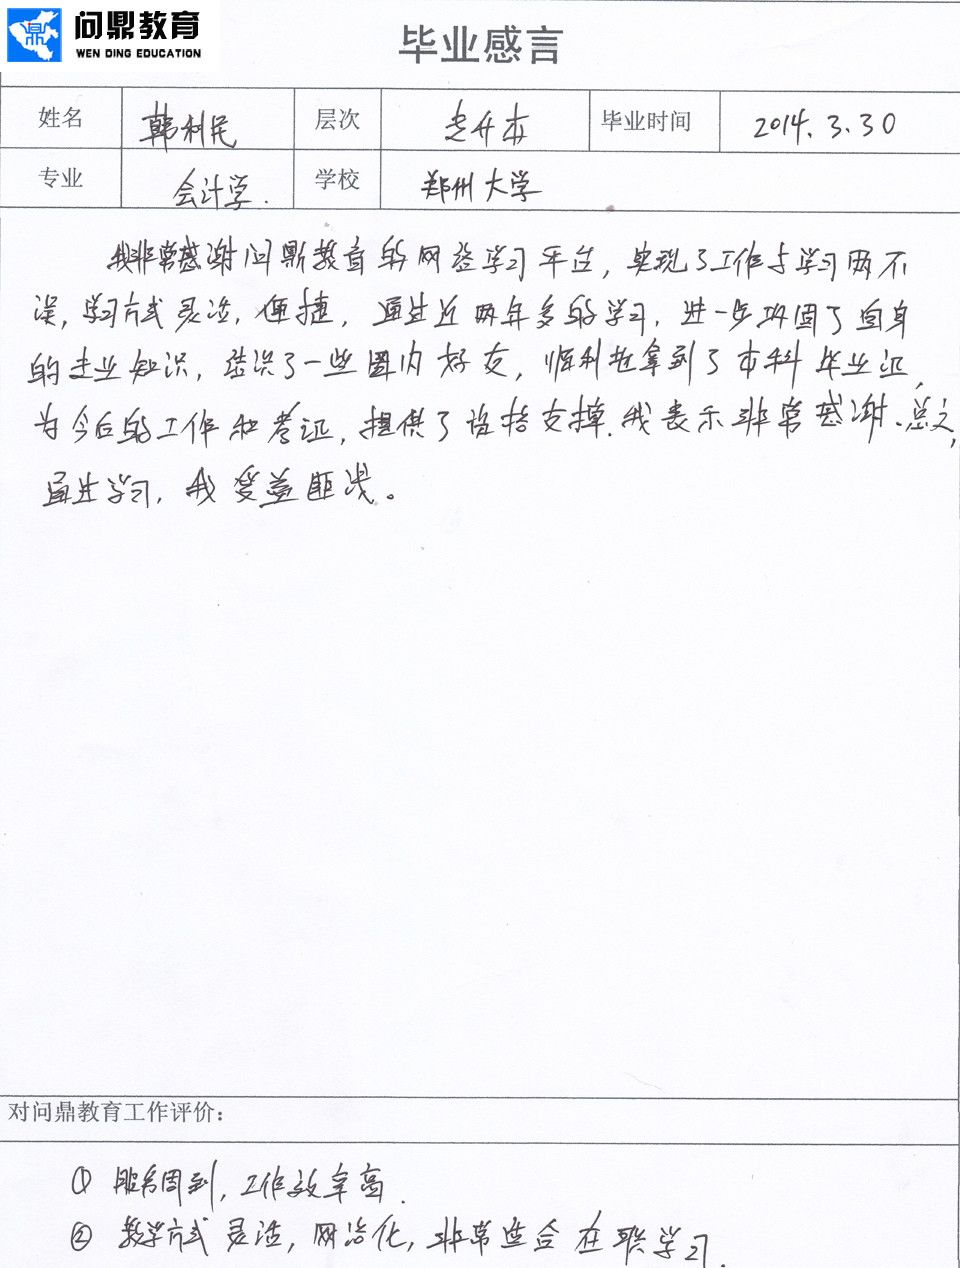 问鼎教育
WEN DING EDUCATION
毕业感言
姓名 韩利民 层次 专升本 毕业时间 2014.3.30
专业 会计学. 学校 郑州大学
我非常感谢问鼎教育的网络学习平台,实现了工作与学习两不
误,学习方式灵活,便捷,通过近两年多的学习,进一步巩固了自身
的专业知识,结识了一些圈内好友,顺利地拿到了本科毕业证,
为今后的工作和考证,提供了设持支撑.我表示非常感谢.总之,
通过学习,我受益匪浅。
对问鼎教育工作评价:
① 服务周到,工作效率高.
② 教学方式灵活,网络化,非常适合在职学习.